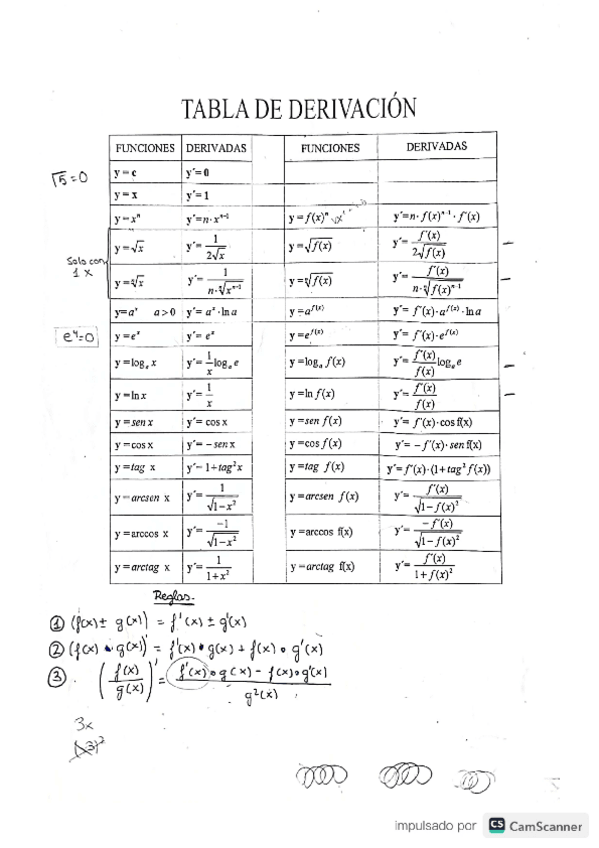 TABLA DE DERIVACIÓN
FUNCIONES DERIVADAS FUNCIONES DERIVADAS
√5=0 y = c y´= 0
y = x y´= 1
y = xⁿ y´= n·xⁿ⁻¹ y = f(x)ⁿ y´= n·f(x)ⁿ⁻¹·f´(x)
y = √x y´= 1/(2√x) y = √f(x) y´= f´(x)/(2√f(x))
Solo con
1 x
y = ⁿ√x y´= 1/(n·ⁿ√xⁿ⁻¹) y = ⁿ√f(x) y´= f´(x)/(n·ⁿ√f(x)ⁿ⁻¹)
y = aˣ a > 0 y´= aˣ·ln a y = a^f(x) y´= f´(x)·a^f(x)·ln a
e⁴=0 y = eˣ y´= eˣ y = e^f(x) y´= f´(x)·e^f(x)
y = logₐ x y´= 1/x logₐ e y = logₐ f(x) y´= f´(x)/f(x) logₐ e
y = ln x y´= 1/x y = ln f(x) y´= f´(x)/f(x)
y = sen x y´= cos x y = sen f(x) y´= f´(x)·cos f(x)
y = cos x y´= − sen x y = cos f(x) y´= − f´(x)·sen f(x)
y = tag x y´− 1+tag²x y = tag f(x) y´= f´(x)·(1+tag² f(x))
y = arcsen x y´= 1/√(1−x²) y = arcsen f(x) y´= f´(x)/√(1−f(x)²)
y = arccos x y´= −1/√(1−x²) y = arccos f(x) y´= −f´(x)/√(1−f(x)²)
y = arctag x y´= 1/(1+x²) y = arctag f(x) y´= f´(x)/(1+f(x)²)
Reglas.
① (f(x) ± g(x))' = f'(x) ± g'(x)
② (f(x) • g(x))' = f'(x) • g(x) + f(x) • g'(x)
③ (f(x)/g(x))' = (f'(x) • g(x) − f(x) • g'(x))/g²(x)
3x
impulsado por CS CamScanner